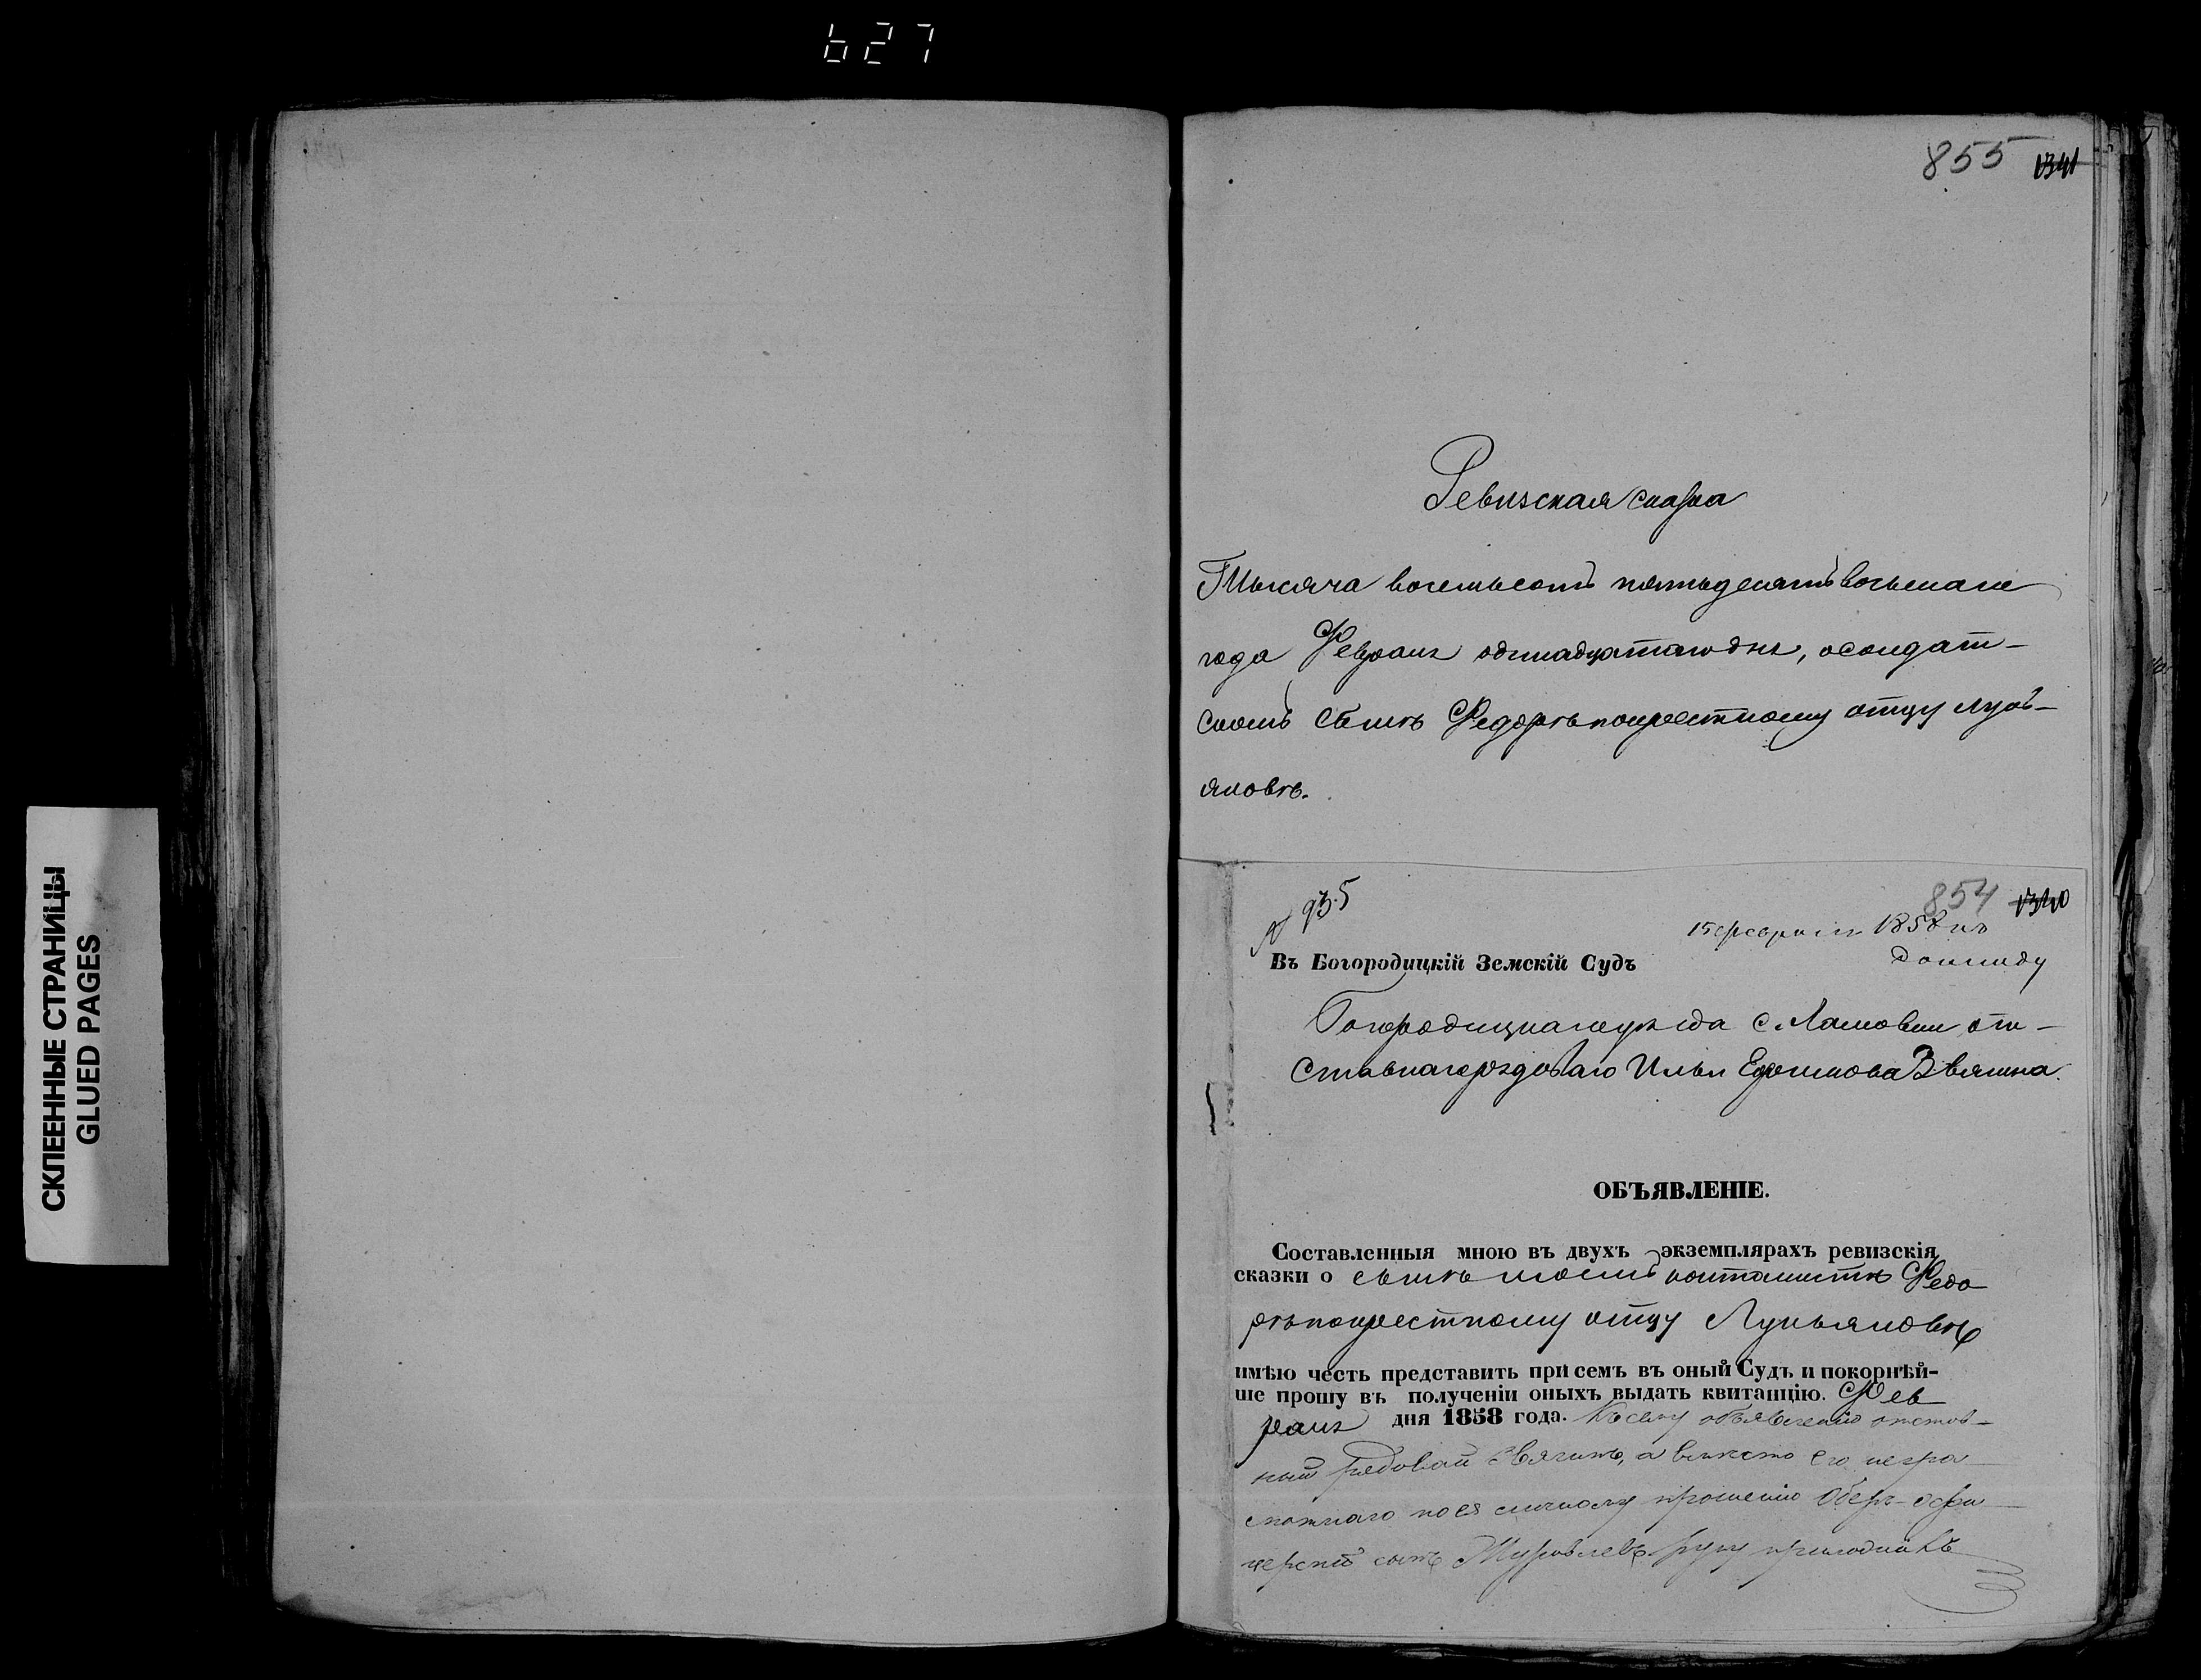 627
СКЛЕЕННЫЕ СТРАНИЦЫ
GLUED PAGES
855 1341
Ревизская сказка
Тысяча восемьсотъ пятьдесятъ восьмаго
года Февраля одинадцатаго дня, о солдат-
скомъ сынѣ Федорѣ по крестному отцу Лукь-
яновѣ.
854 1340
№ 935
15 февраля 1858 къ
докладу
Въ Богородицкій Земскій Судъ
Богородицкаго уѣзда с. Ламовки от-
ставнаго рядоваго Ильи Ефимова Звягина.
ОБЪЯВЛЕНІЕ.
Составленныя мною въ двухъ экземплярахъ ревизскія
сказки о сынѣ моемъ кантонистѣ Федо
рѣ по крестному отцу Лукьяновѣ
имѣю честь представить при семъ въ оный Судъ и покорнѣй-
ше прошу въ полученіи оныхъ выдать квитанцію. Фев
раля дня 1858 года. Къ сему объявленію отстав-
ный рядовой Звягинъ, а вмѣсто его негра-
мотнаго по его личному прошенію Оберъ-офи-
церскій сынъ Журавлевъ руку приложилъ